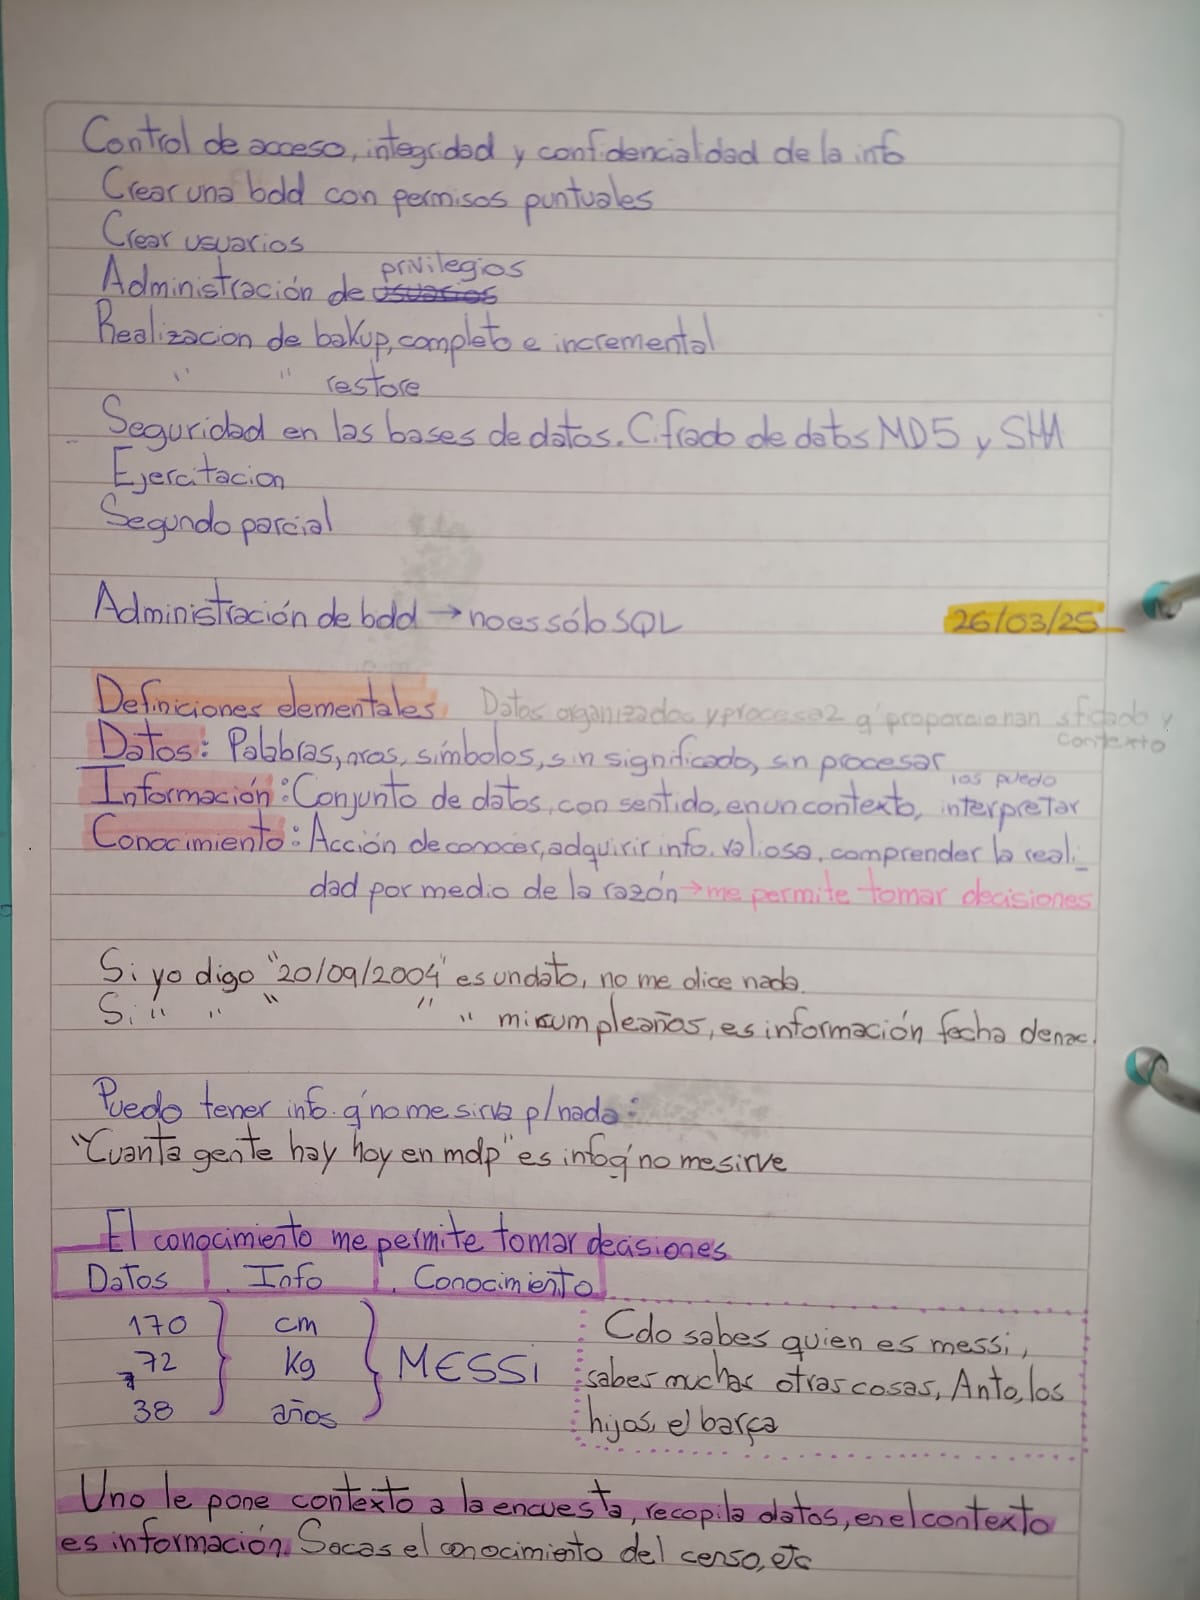 Control de acceso, integridad y confidencialidad de la info
Crear una bdd con permisos puntuales
Crear usuarios
privilegios
Administración de usuarios
Realizacion de bakup, completo e incremental
" " restore
Seguridad en las bases de datos. Cifrado de datos MD5 y SHA
Ejercitacion
Segundo parcial
Administración de bdd → no es sólo SQL
26/03/25
Definiciones elementales
Datos organizados y procesa2 q' proporcionan sficado y
contexto
Datos: Palabras, nros, símbolos, sin significado, sin procesar
los puedo
Información: Conjunto de datos, con sentido, en un contexto, interpretar
Conocimiento: Acción de conocer, adquirir info. valiosa, comprender la reali-
dad por medio de la razón → me permite tomar decisiones
Si yo digo "20/09/2004" es un dato, no me dice nada.
Si " " " " " mi cumpleaños, es información fecha de nac.
Puedo tener info. q' no me sirva p/nada:
"Cuanta gente hay hoy en mdp" es info q' no me sirve
El conocimiento me permite tomar decisiones
Datos Info Conocimiento
170 cm
72 Kg MESSI
38 años
Cdo sabes quien es messi,
sabes muchas otras cosas, Anto, los
hijos, el barça
Uno le pone contexto a la encuesta, recopila datos, en el contexto
es información. Sacas el conocimiento del censo, etc